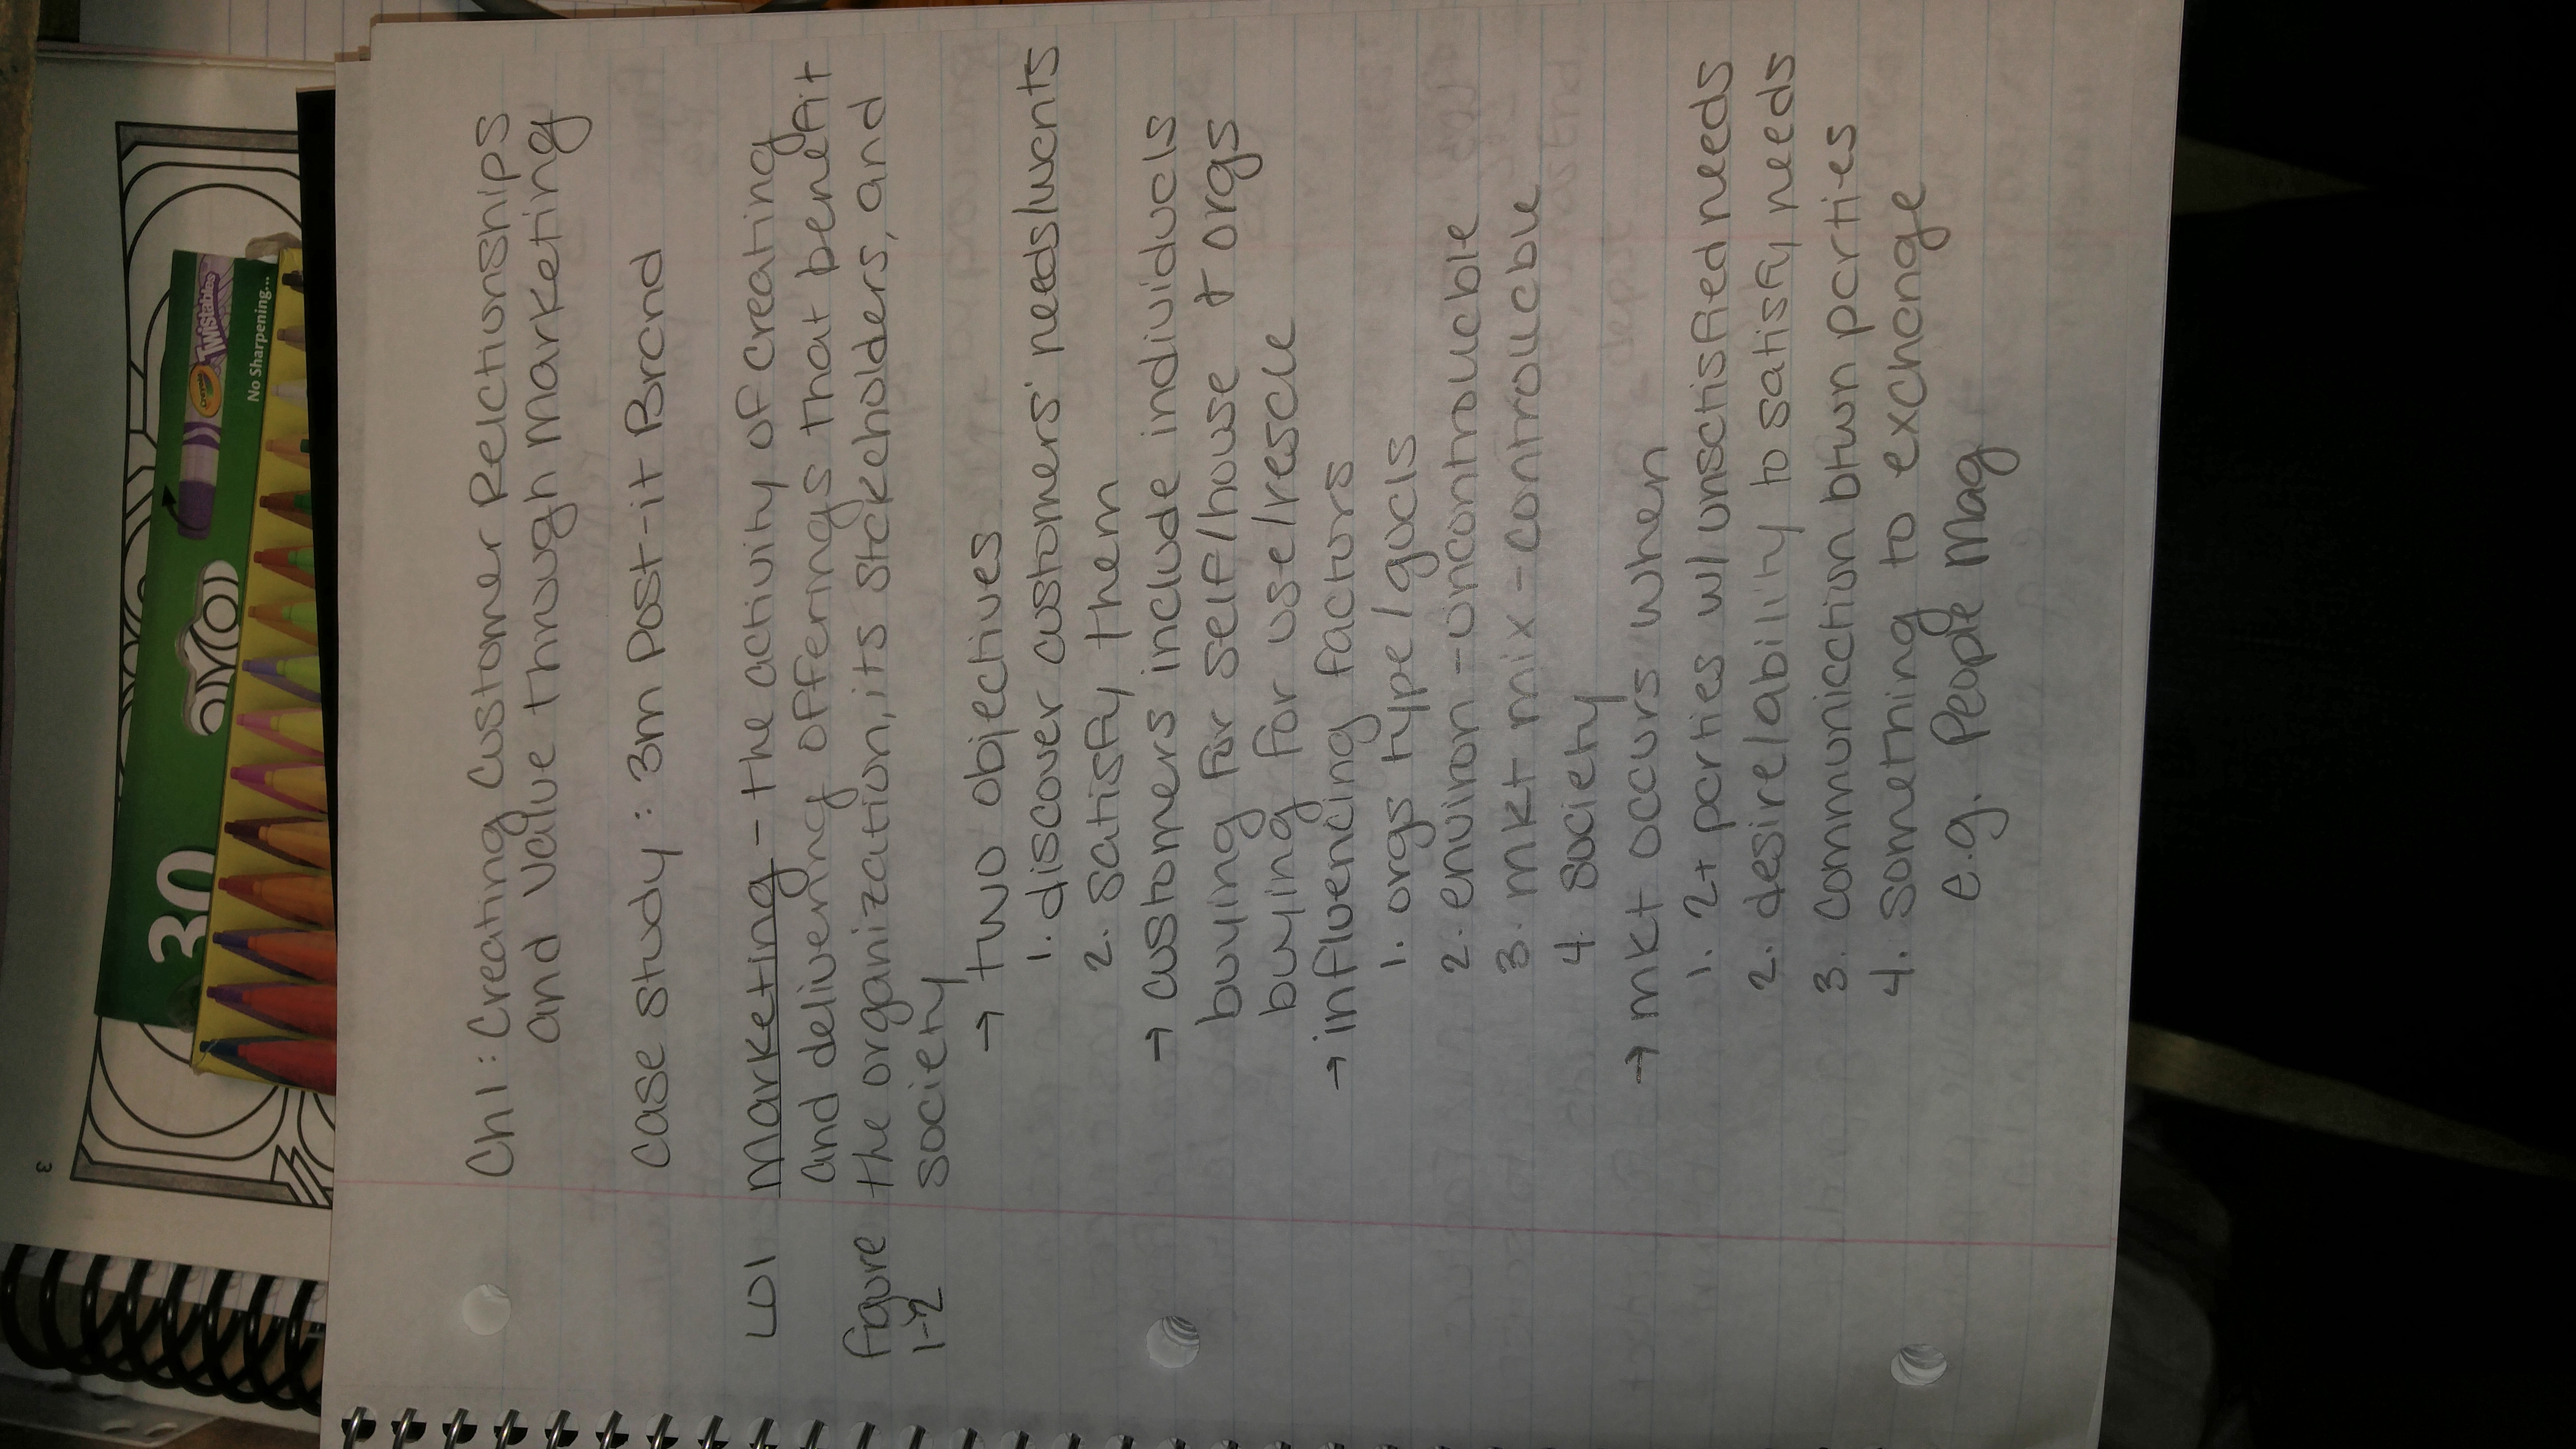 Ch 1: Creating Customer Relationships
and Value through Marketing
Case study: 3m Post-it Brand
LO1 Marketing - the activity of creating
and delivering offerings that benefit
Figure the organization, its stakeholders, and
1-2 society
→ two objectives
1. discover customers' needs/wants
2. satisfy them
→ customers include individuals
buying for self/house + orgs
buying for use/resale
→ influencing factors
1. orgs type/goals
2. environ - uncontrollable
3. mkt mix - controllable
4. society
→ mkt occurs when
1. 2+ parties w/ unsatisfied needs
2. desire/ability to satisfy needs
3. communication btwn parties
4. something to exchange
e.g. People Mag
30
Crayola
Twistables
No Sharpening...
3